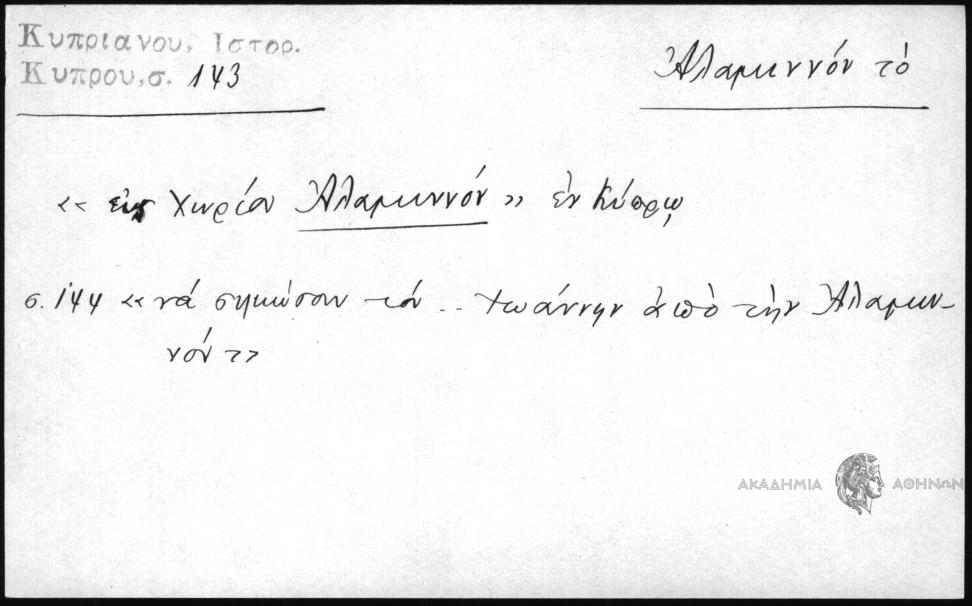 Κυπριανου, Ιστορ.
Κυπρου, σ. 143
Ἀλαμιννόν τὸ
« εἰς χωρίον Ἀλαμιννόν » ἐν Κύπρῳ
σ. 144 « νά σηκώσουν τόν .. Ἰωάννην ἀπὸ τὴν Ἀλαμιν-
νόν »
ΑΚΑΔΗΜΙΑ ΑΘΗΝΩΝ